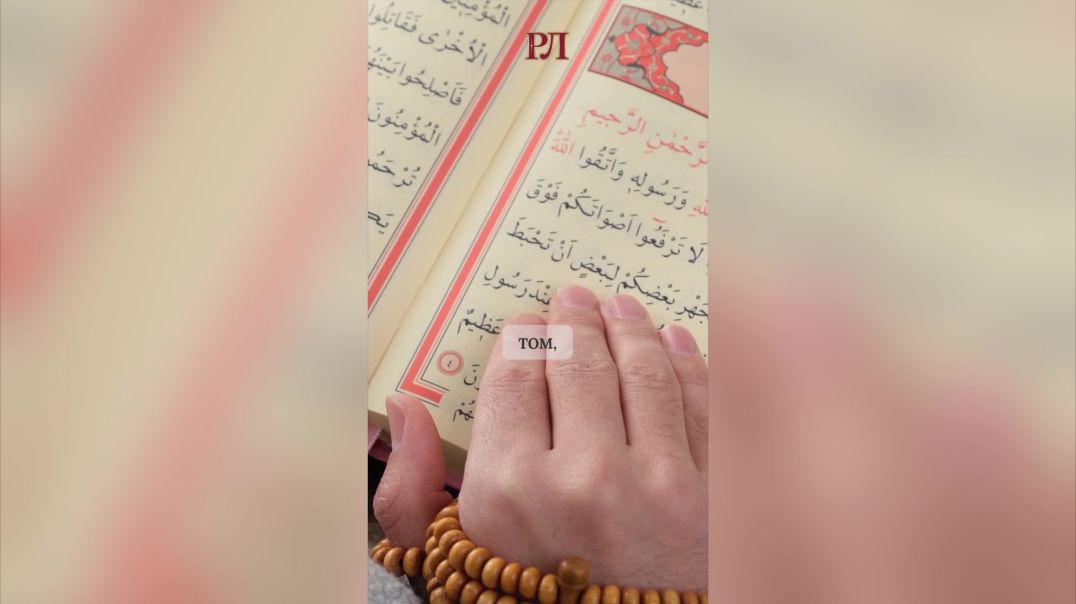 РЛ
الْمُؤْمِنِينَ
الْأُخْرٰى فَقَاتِلُوا
فَاَصْلِحُوا بَيْنَهُ
الْمُؤْمِنُونَ
تُرْحَمُ
عَظِيمٌ
الرَّحْمٰنِ الرَّحِيمِ
اللّٰهِ وَرَسُولِهٖ وَاتَّقُوا اللّٰهَ
لَا تَرْفَعُوا اَصْوَاتَكُمْ فَوْقَ
جَهْرِ بَعْضِكُمْ لِبَعْضٍ اَنْ تَحْبَطَ
عِنْدَ رَسُولِ
عَظِيمٌ
٤
том,